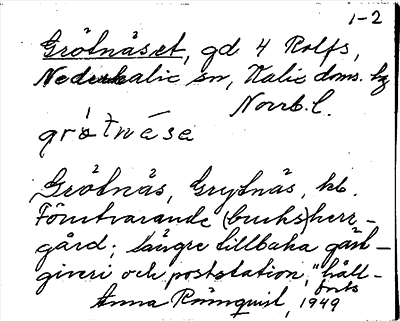 1-2
Grötnäset, gd 4 Rolfs,
Nederkalix sn, Kalix doms. hg
Norrb. l.
grö̀tnésa
Grötnäs, Grytnäs, kb.
Förutvarande (bruks)herr-
gård; längre tillbaka gäst-
giveri och poststation, "håll-
Anna Rönnquist, 1949